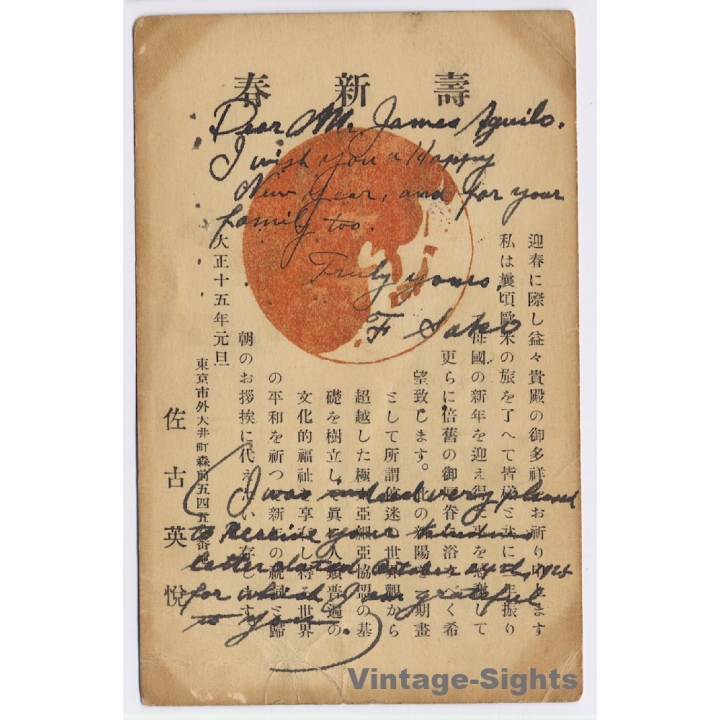 壽新春
Dear Mr. James Aguilo.
I wish you a Happy
New Year, and for your
family too.
Truly yours,
F Sako
迎春に際し益々貴殿の御多祥をお祈り申します
私は曩頃歐米の旅を了へて皆様と共に
母國の新年を迎え
更らに倍舊の御眷浴く希
望致します。此の新陽を期畫
として所謂迷の世界觀から
超越した極亞細亞協盟の基
礎を樹立し眞人類普遍の
文化的福祉を享し得る世界
の平和を祈つ新年の祝詞と歸
朝のお挨拶に代えます
大正十五年元旦
東京市外大井町森前五四五番
佐古英悦
(I was indeed very pleased
to receive your kindness
letter dated October
for which I am grateful
to you.)
Vintage-Sights